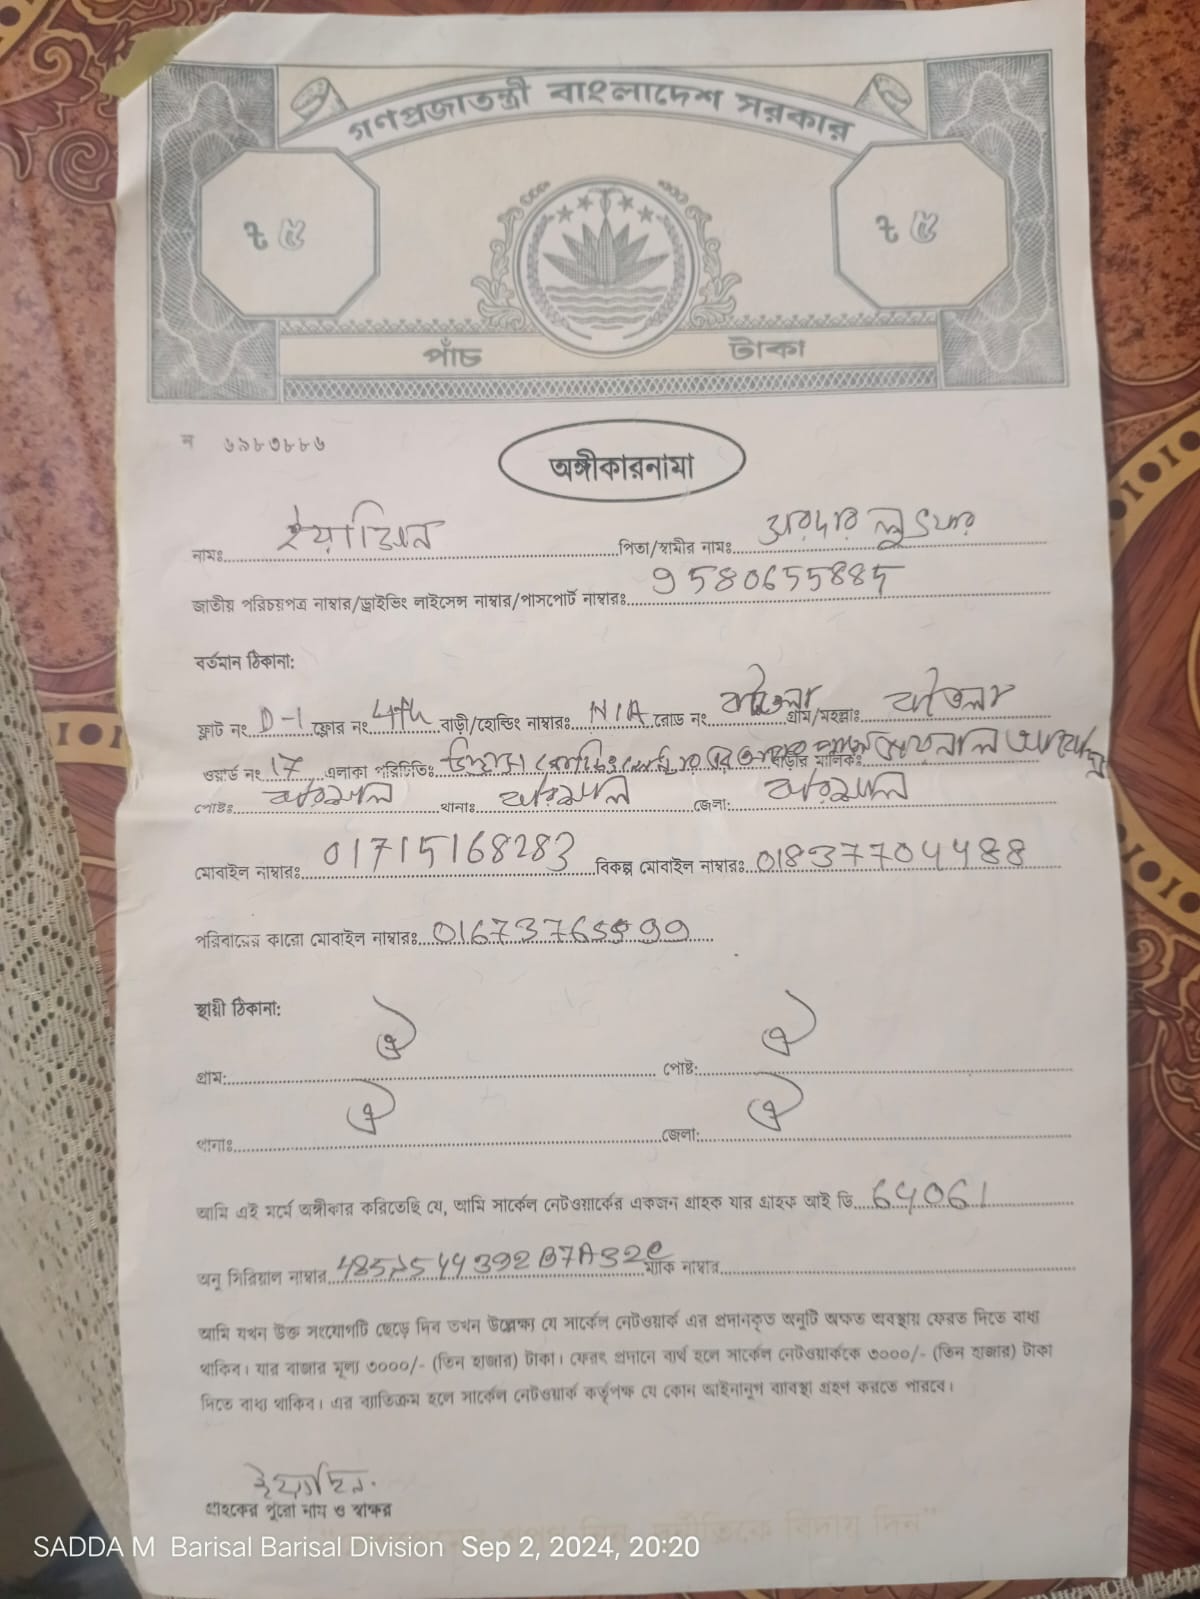 গণপ্রজাতন্ত্রী বাংলাদেশ সরকার
৳ ৫ ৳ ৫
পাঁচ টাকা
ন ৬৯৮৩৮৮৬
অঙ্গীকারনামা
নামঃ ইয়াসিন পিতা/স্বামীর নামঃ সরদার লুৎফর
জাতীয় পরিচয়পত্র নাম্বার/ড্রাইভিং লাইসেন্স নাম্বার/পাসপোর্ট নাম্বারঃ 9580655885
বর্তমান ঠিকানা:
ফ্লাট নং D-1 ফ্লোর নং 4th বাড়ী/হোল্ডিং নাম্বারঃ N/A রোড নং গ্রাম/মহল্লাঃ
ওয়ার্ড নং 17 এলাকা পরিচিতিঃ বাড়ীর মালিকঃ
পোষ্টঃ বরিশাল থানাঃ বরিশাল জেলা: বরিশাল
মোবাইল নাম্বারঃ 01715168283 বিকল্প মোবাইল নাম্বারঃ 01837704488
পরিবারের কারো মোবাইল নাম্বারঃ
স্থায়ী ঠিকানা:
গ্রাম: ঐ পোষ্ট: ঐ
থানাঃ ঐ জেলা: ঐ
আমি এই মর্মে অঙ্গীকার করিতেছি যে, আমি সার্কেল নেটওয়ার্কের একজন গ্রাহক যার গ্রাহক আই ডি 64061
অনু সিরিয়াল নাম্বার ম্যাক নাম্বার
আমি যখন উক্ত সংযোগটি ছেড়ে দিব তখন উল্লেক্ষ্য যে সার্কেল নেটওয়ার্ক এর প্রদানকৃত অনুটি অক্ষত অবস্থায় ফেরত দিতে বাধ্য
থাকিব। যার বাজার মূল্য ৩০০০/- (তিন হাজার) টাকা। ফেরৎ প্রদানে ব্যর্থ হলে সার্কেল নেটওয়ার্ককে ৩০০০/- (তিন হাজার) টাকা
দিতে বাধ্য থাকিব। এর ব্যতিক্রম হলে সার্কেল নেটওয়ার্ক কর্তৃপক্ষ যে কোন আইনানুগ ব্যাবস্থা গ্রহণ করতে পারবে।
ইয়াসিন
গ্রাহকের পুরো নাম ও স্বাক্ষর
SADDA M Barisal Barisal Division Sep 2, 2024, 20:20